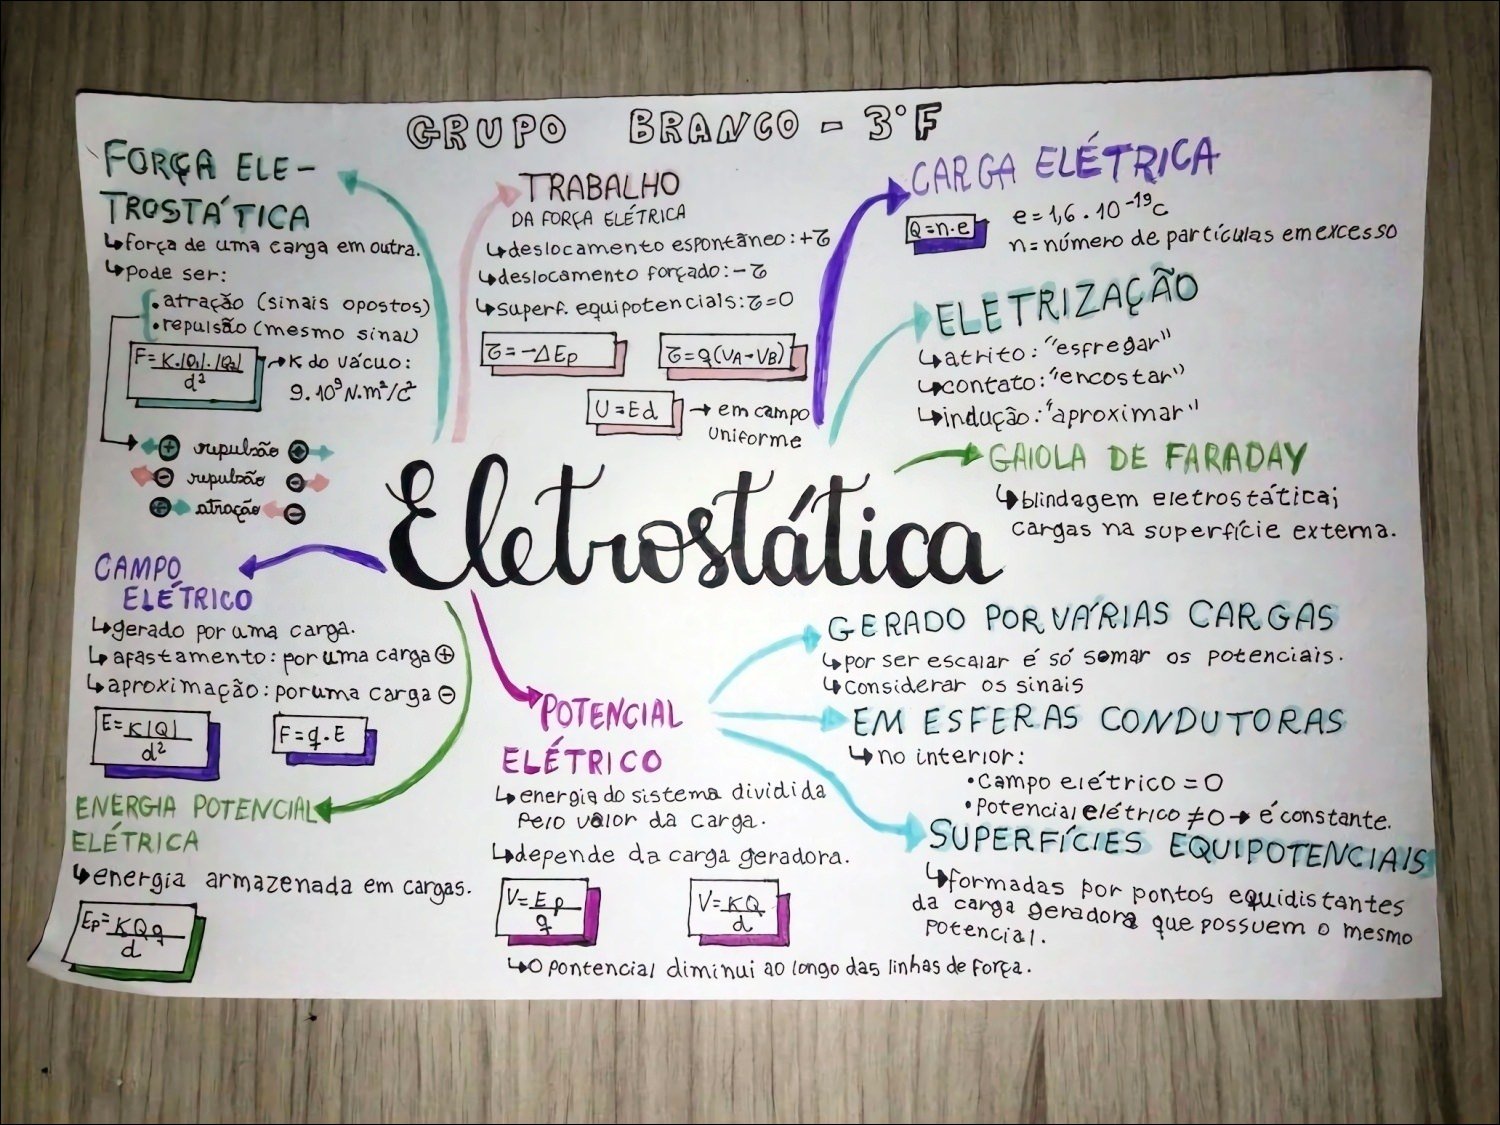 GRUPO BRANCO - 3°F
FORÇA ELE-
TROSTÁTICA
↳força de uma carga em outra.
↳pode ser:
• atração (sinais opostos)
• repulsão (mesmo sinal)
F = K.|Q₁|.|Q₂|
d²
→ K do vácuo:
9.10⁹N.m²/c²
+ repulsão +
- repulsão -
+ atração -
TRABALHO
DA FORÇA ELÉTRICA
↳deslocamento espontâneo: +τ
↳deslocamento forçado: -τ
↳superf. equipotencials: τ=0
τ = -ΔEp
τ = q(VA-VB)
U = Ed → em campo
uniforme
CARGA ELÉTRICA
Q=n.e
e = 1,6 . 10⁻¹⁹c
n = número de partículas em excesso
ELETRIZAÇÃO
↳atrito: "esfregar"
↳contato: "encostar"
↳indução: "aproximar"
GAIOLA DE FARADAY
↳blindagem eletrostática;
cargas na superfície externa.
Eletrostática
CAMPO
ELÉTRICO
↳gerado por uma carga.
↳afastamento: por uma carga ⊕
↳aproximação: por uma carga ⊖
E = K|Q|
d²
F = q . E
ENERGIA POTENCIAL
ELÉTRICA
↳energia armazenada em cargas.
Ep = KQq
d
POTENCIAL
ELÉTRICO
↳energia do sistema dividida
pelo valor da carga.
↳depende da carga geradora.
V = Ep
q
V = KQ
d
↳O pontencial diminui ao longo das linhas de força.
GERADO POR VÁRIAS CARGAS
↳por ser escalar é só somar os potenciais.
↳considerar os sinais
EM ESFERAS CONDUTORAS
↳no interior:
• Campo elétrico = 0
• Potencial elétrico ≠ 0 → é constante.
SUPERFÍCIES EQUIPOTENCIAIS
↳formadas por pontos equidistantes
da carga geradora que possuem o mesmo
potencial.